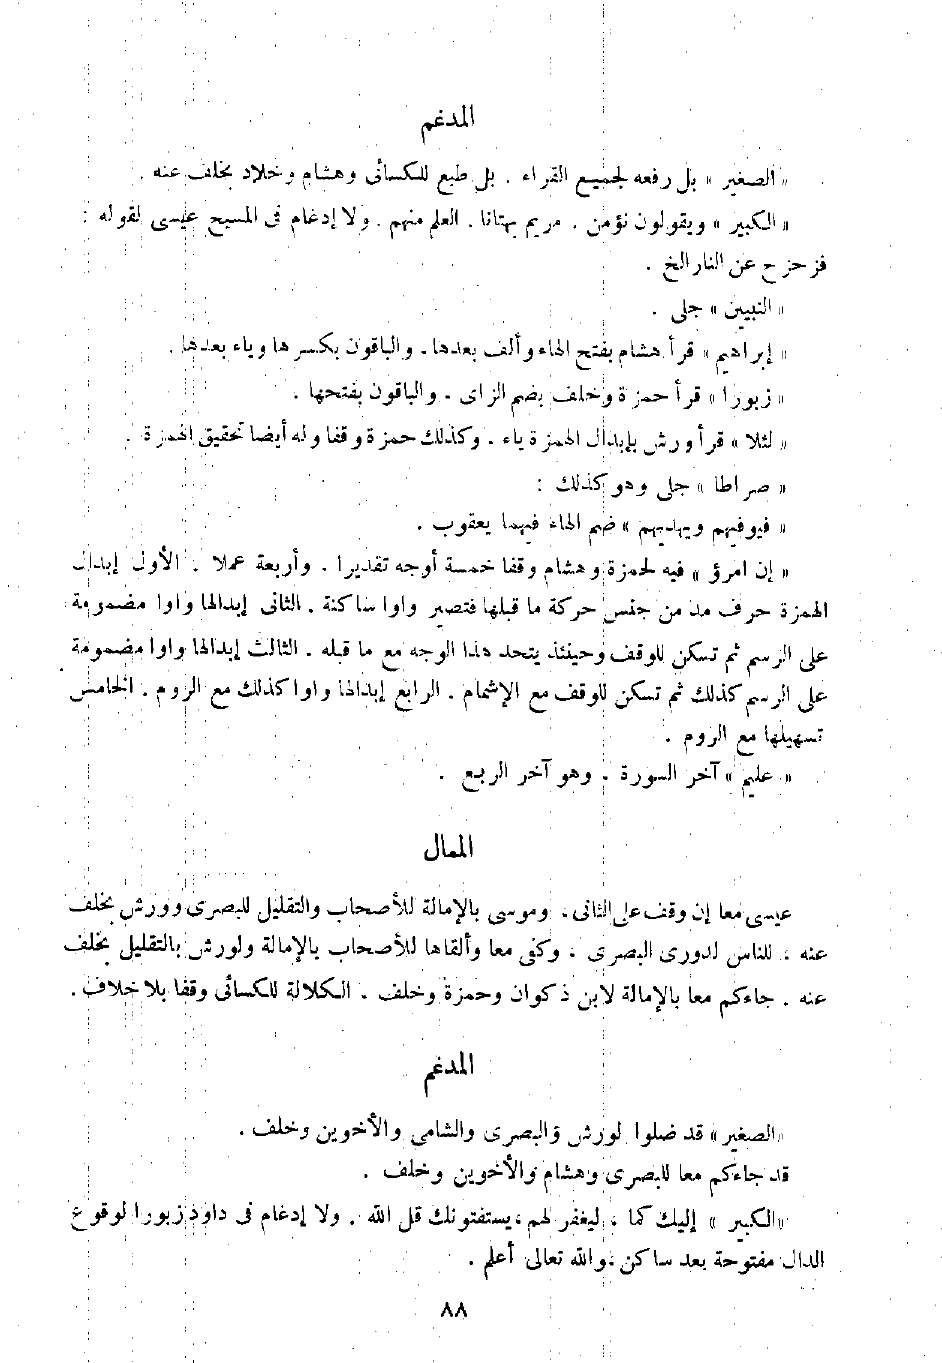 المدغم
« الصغير » بل رفعه لجميع القراء . بل طبع للكسائى وهشام وخلاد بخلف عنه .
« الكبير » ويقولون نؤمن . مريم بهتانا . العلم منهم . ولا إدغام فى المسيح عيسى لقوله :
فزحزح عن النار الخ .
« النبيين » جلى .
« إبراهيم » قرأ هشام بفتح الهاء وألف بعدها . والباقون بكسرها وياء بعدها .
« زبورا » قرأ حمزة وخلف بضم الزاى . والباقون بفتحها .
« لئلا » قرأ ورش بإبدال الهمزة ياء . وكذلك حمزة وقفا وله أيضا تحقيق الهمزة .
« صراطا » جلى وهو كذلك :
« فيوفيهم ويهديهم » ضم الهاء فيهما يعقوب .
« إن امرؤ » فيه لحمزة وهشام وقفا خمسة أوجه تقديرا . وأربعة عملا . الأول إبدال
الهمزة حرف مد من جنس حركة ما قبلها فتصير واوا ساكنة . الثانى إبدالها واوا مضمومة
على الرسم ثم تسكن للوقف وحينئذ يتحد هذا الوجه مع ما قبله . الثالث إبدالها واوا مضمومة
على الرسم كذلك ثم تسكن للوقف مع الإشمام . الرابع إبدالها واوا كذلك مع الروم . الخامس
تسهيلها مع الروم .
« عليم » آخر السورة . وهو آخر الربع .
الممال
عيسى معا إن وقف على الثانى . وموسى بالإمالة للأصحاب والتقليل للبصرى وورش بخلف
عنه ، للناس لدورى البصرى . وكفى معا وألقاها للأصحاب بالإمالة ولورش بالتقليل بخلف
عنه . جاءكم معا بالإمالة لابن ذكوان وحمزة وخلف . الكلالة للكسائى وقفا بلا خلاف .
المدغم
« الصغير » قد ضلوا لورش والبصرى والشامى والأخوين وخلف .
قد جاءكم معا للبصرى وهشام والأخوين وخلف .
« الكبير » إليك كما ، ليغفر لهم ، يستفتونك قل الله . ولا إدغام فى داود زبورا لوقوع
الدال مفتوحة بعد ساكن ، والله تعالى أعلم .
٨٨